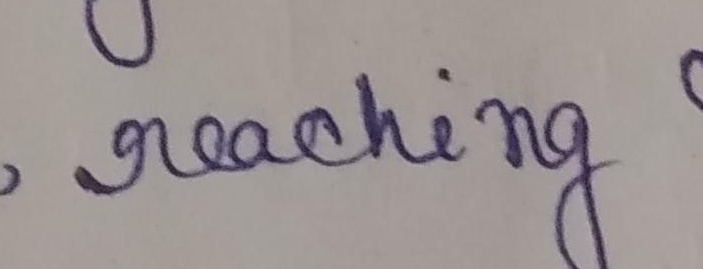 , reaching